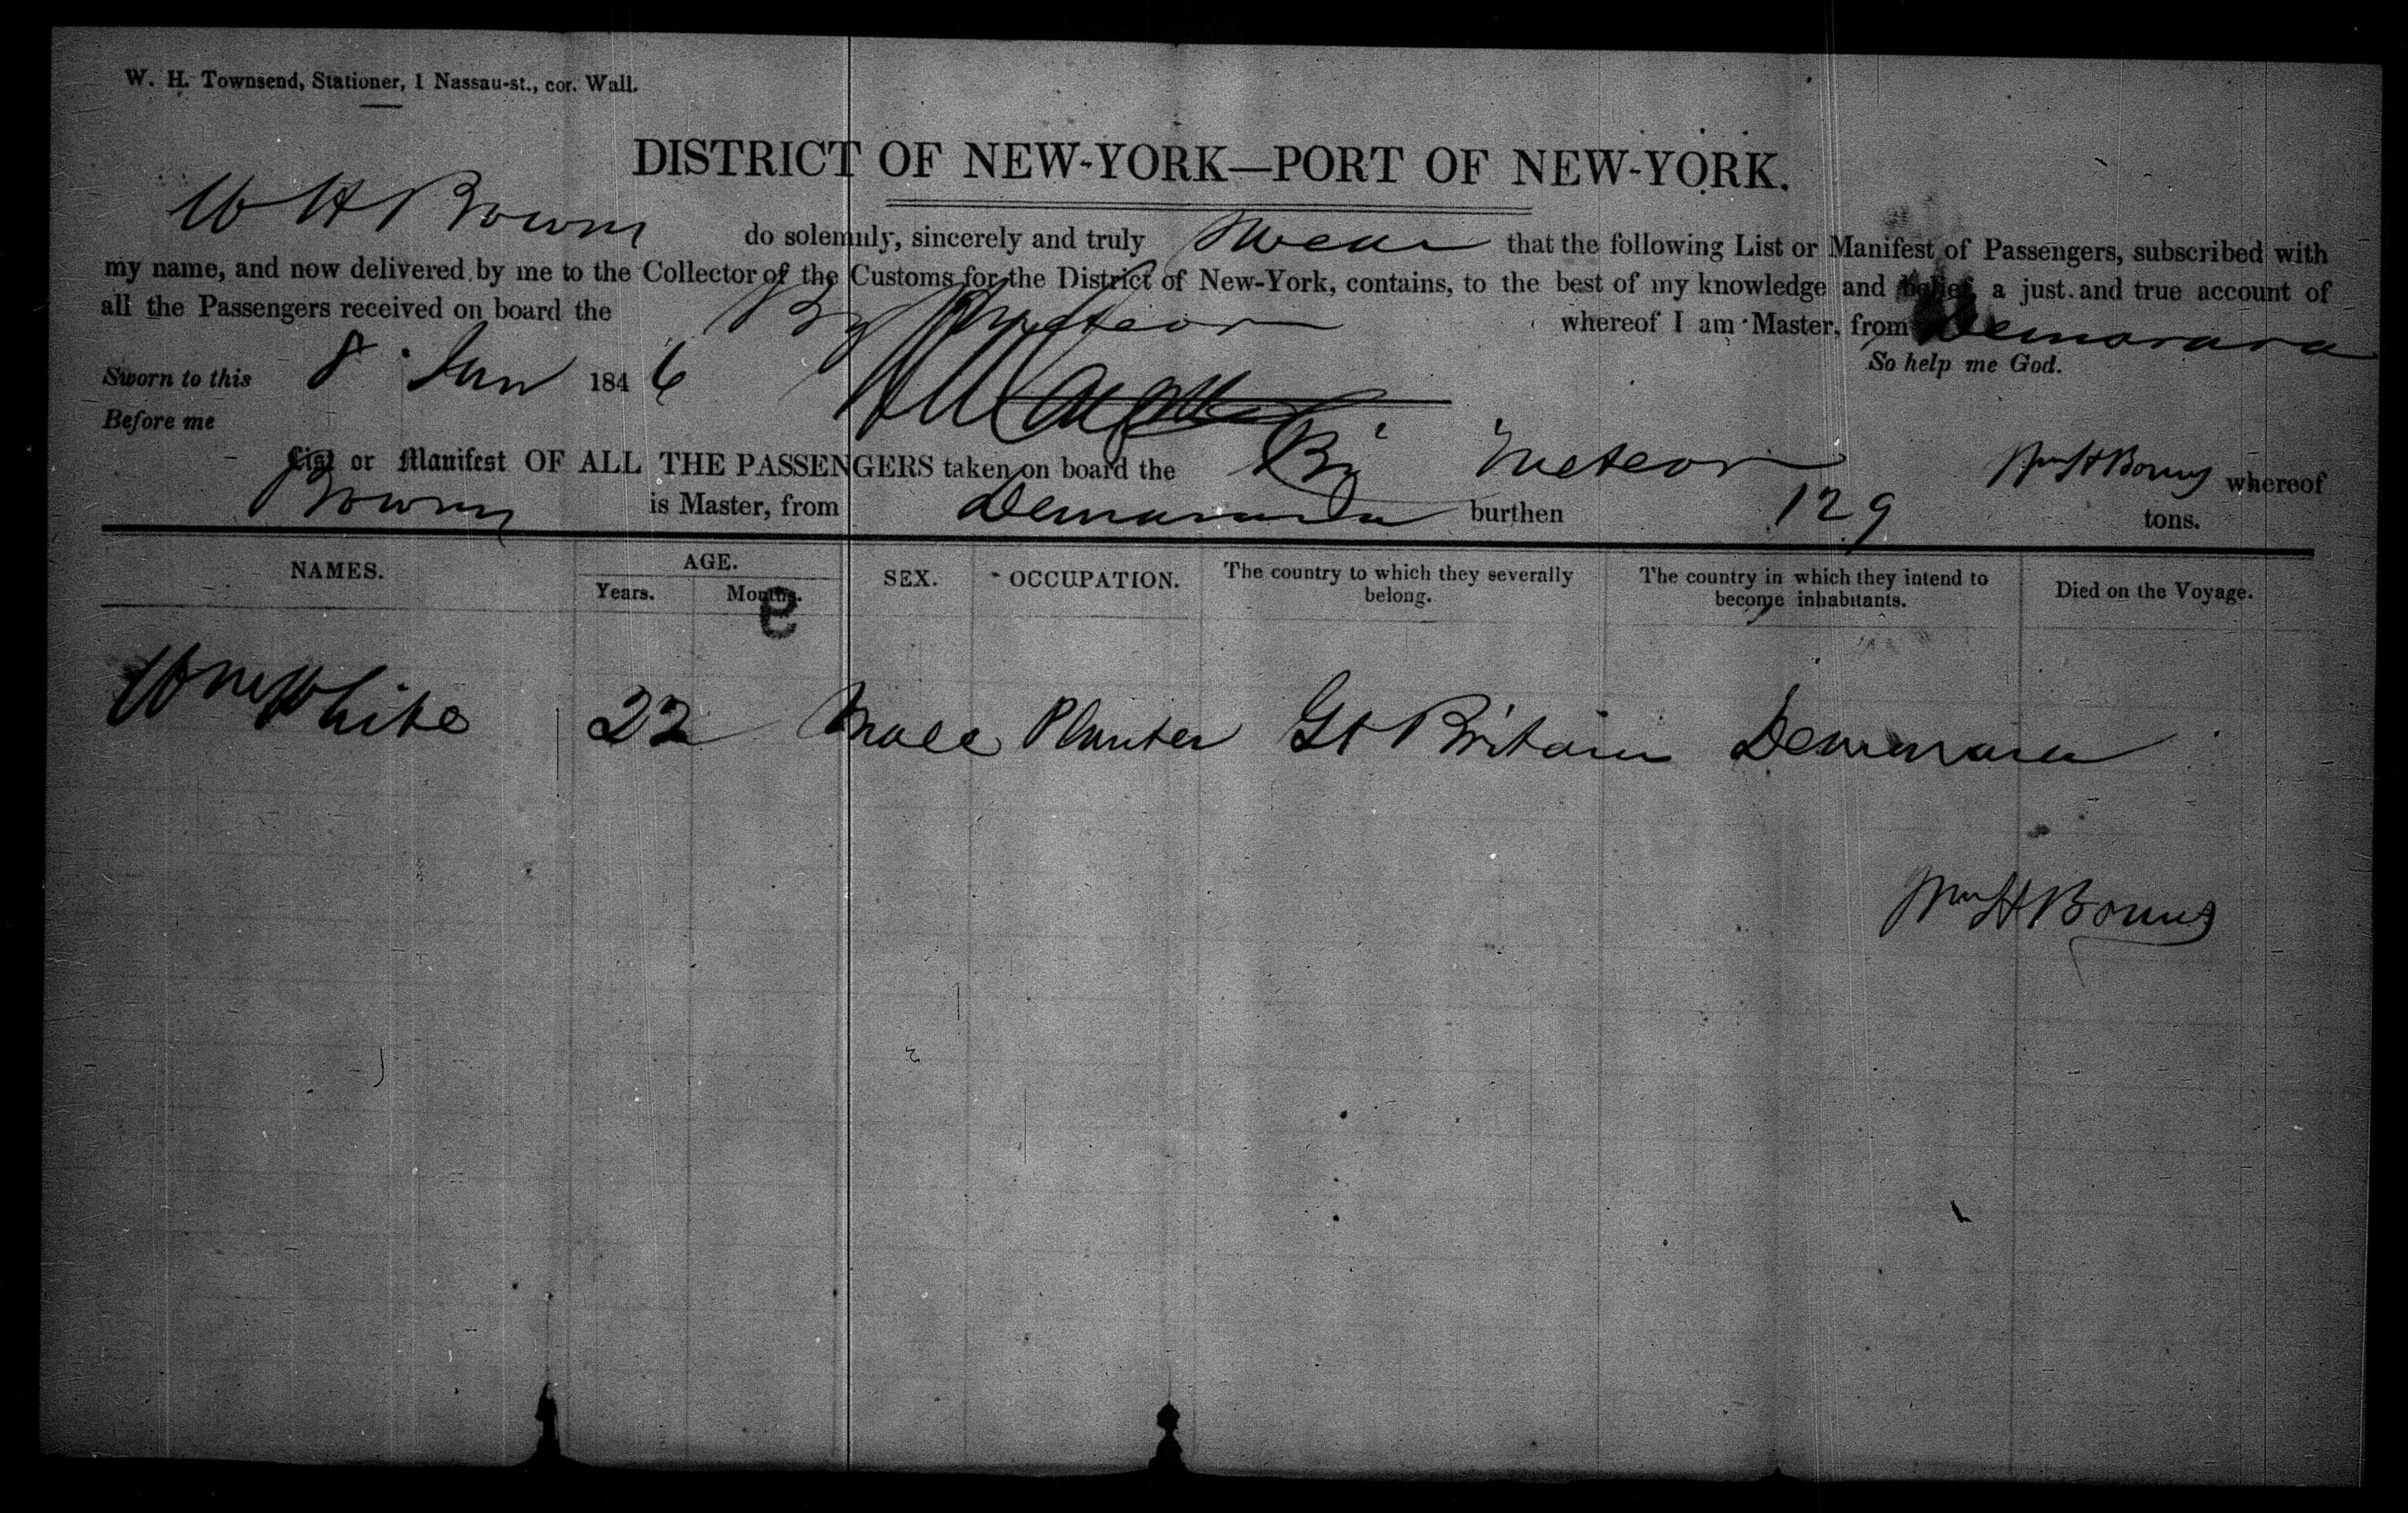 W. H. Townsend, Stationer, 1 Nassau-st., cor. Wall.
DISTRICT OF NEW-YORK—PORT OF NEW-YORK.
W H Bowns do solemnly, sincerely and truly Swear that the following List or Manifest of Passengers, subscribed with
my name, and now delivered by me to the Collector of the Customs for the District of New-York, contains, to the best of my knowledge and belief, a just and true account of
all the Passengers received on board the Bg Meteor whereof I am Master, from Demarara
So help me God.
Sworn to this 8 Jan 1846
Before me
List or Manifest OF ALL THE PASSENGERS taken on board the Bg Meteor Wm H Bowns whereof
Bowns is Master, from Demarara burthen 129 tons.
NAMES. AGE. SEX. OCCUPATION. The country to which they severally belong. The country in which they intend to become inhabitants. Died on the Voyage.
Years. Months.
9
Wm White 22 Male Planter Gt Britain Demarara
Wm H Bowns